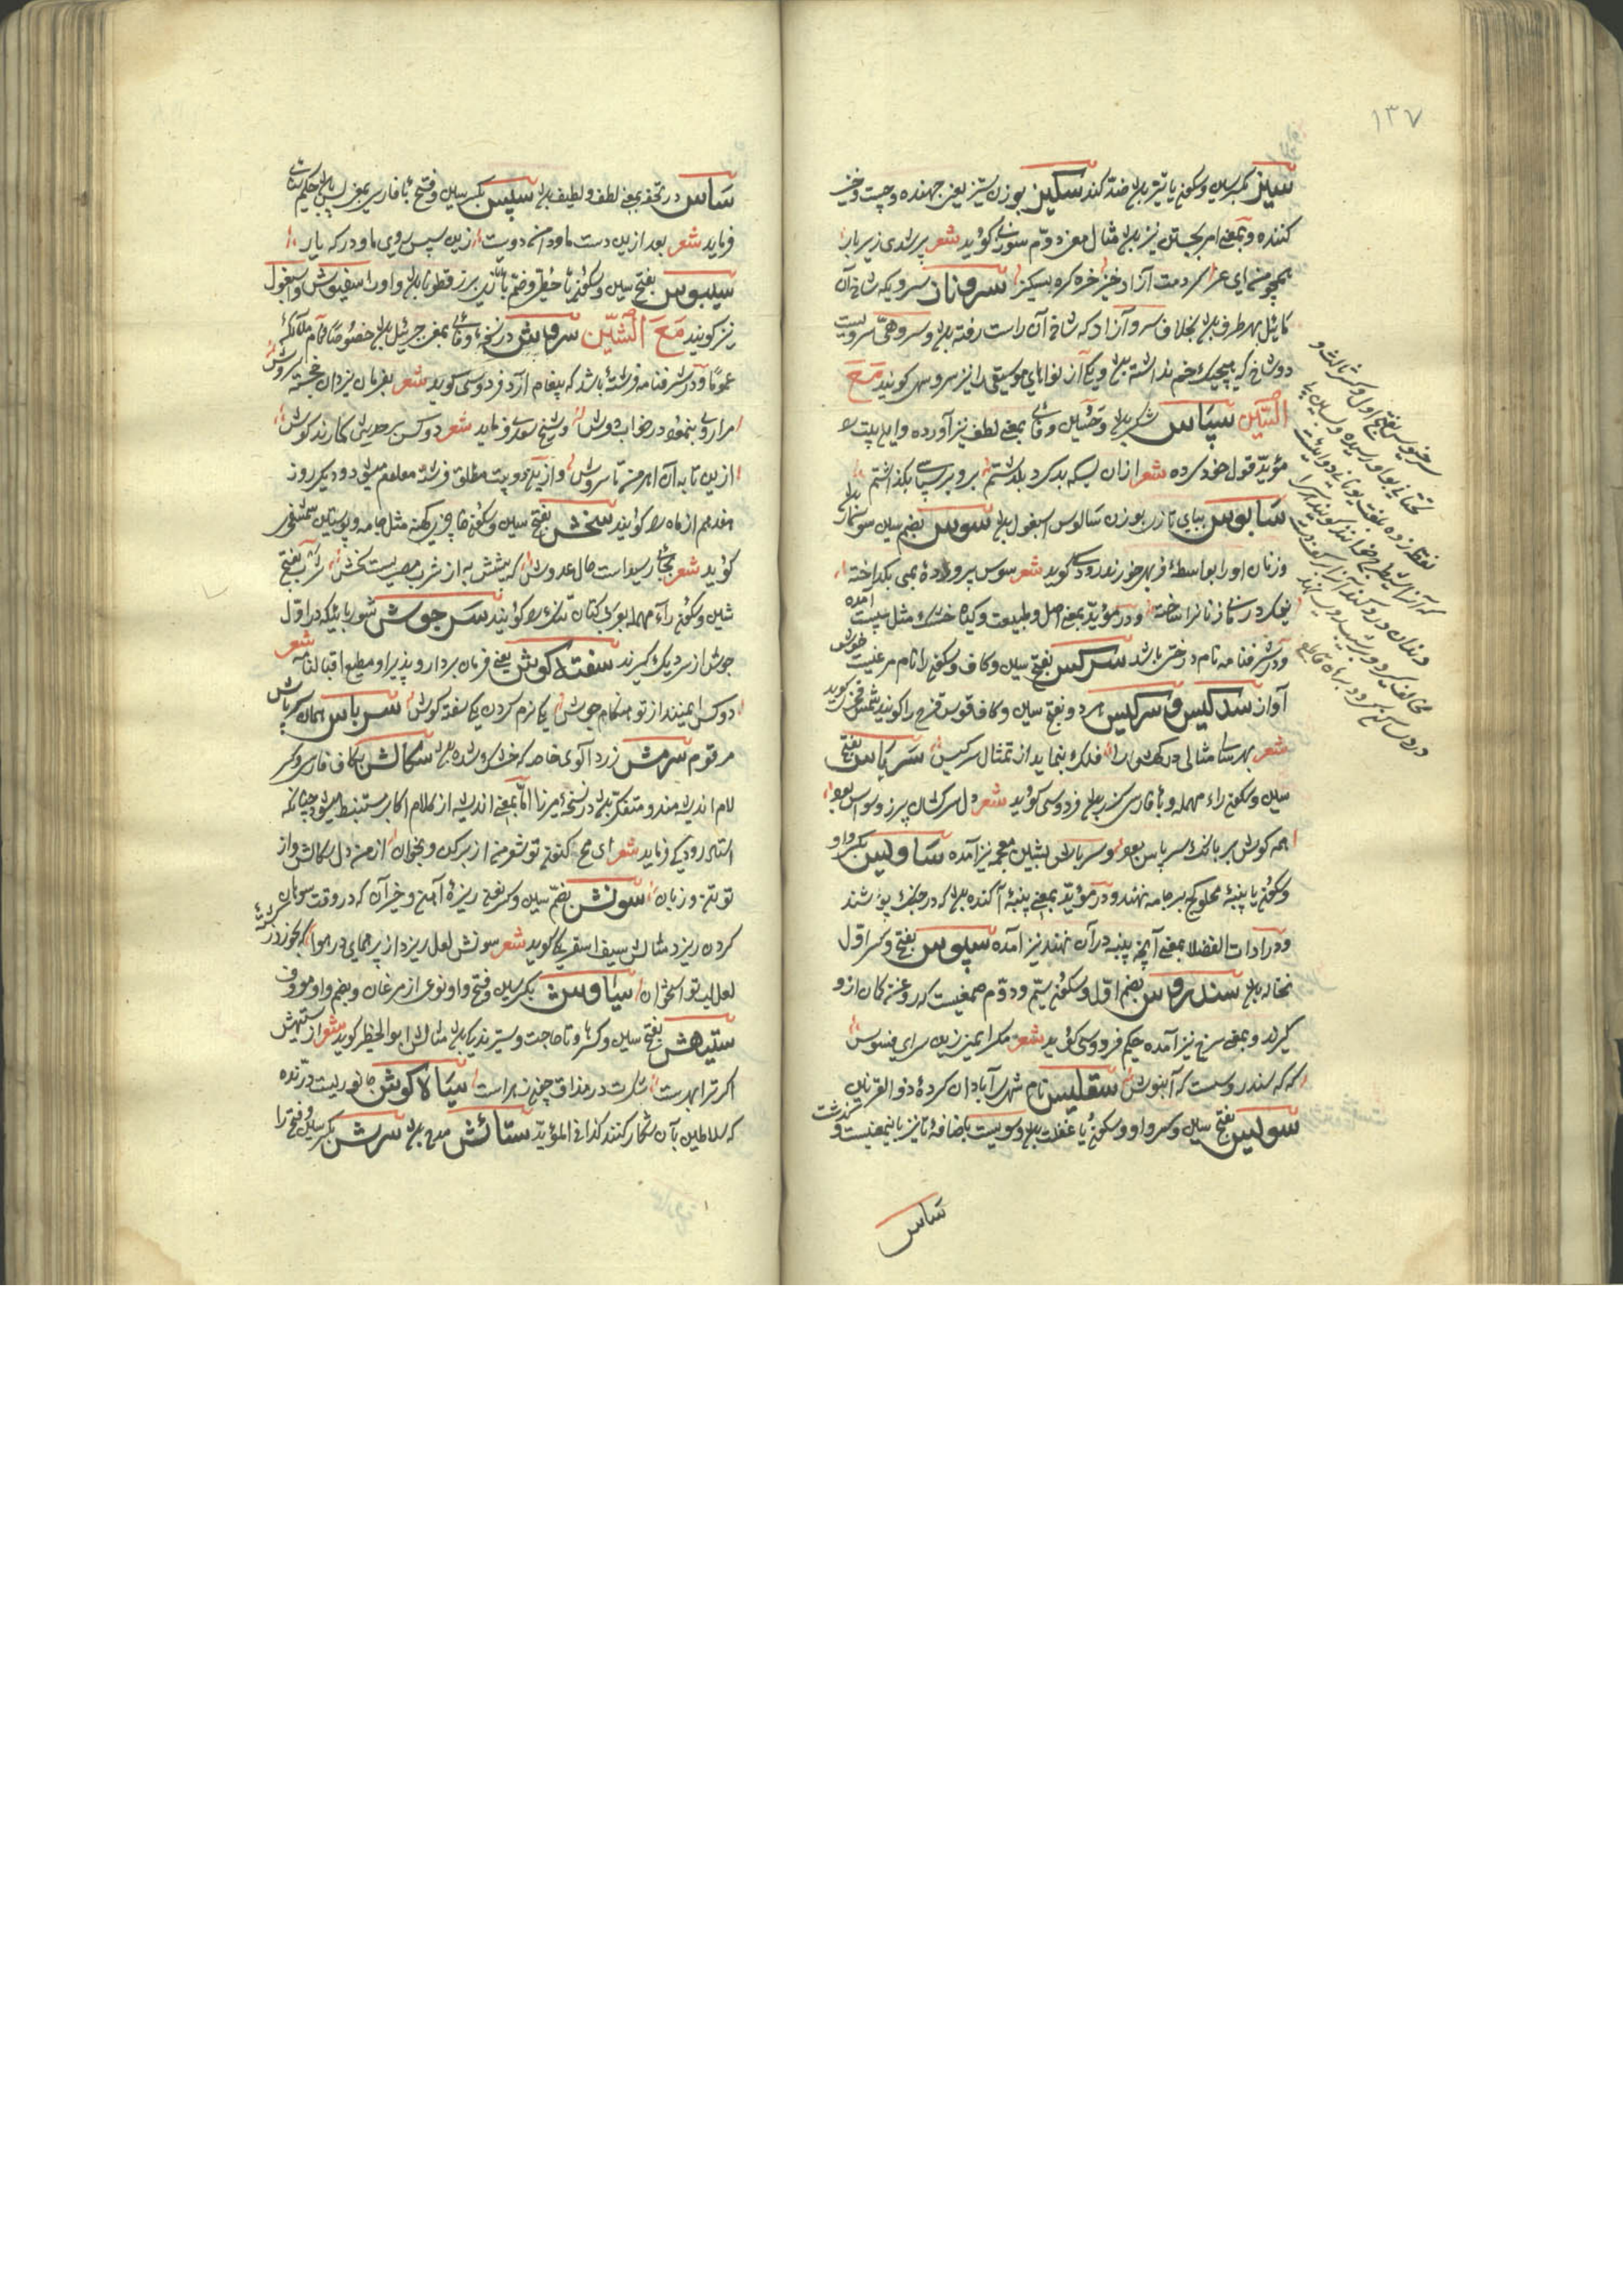 ۱۳۷
سیز بکسر سین و سکون یا تیز باشد ضد کند سکیز بوزن ستیز یعنی جهنده و جست و خیز
کننده و بمعنی امر بجستن نیز باشد مثال معنی دوم سوزنی گوید شعر
همچو من ای خر آزاد خیز خره کره بسکیز سروناز سرویکه شاخ آن
مایل بهر طرف باشد بخلاف سرو آزاد که شاخ آن راست رفته باشد و سروهی سرویست
دو شاخ که هیچیک خم نداشته باشد و یکی از نواهای موسیقی را نیز سرو سهی گویند مَعَ
السّین سپاس شکر باشد و تحسین وفائی بمعنی لطف نیز آورده و این بیت
مؤید قول خود کرده شعر ازان پس که بد کرد بگذاشتم برو بر سپاسی بگذاشتم
سابوس ببای تازی بوزن سالوس اسبغول باشد سوس بضم سین سوسمار باشد
و زنان او را بواسطهٔ فربهی خورند رودکی گوید شعر سوس پرورده بمی بگداخته
نیک درمانی زنانرا ساخته و در مؤید بمعنی اصل و طبیعت و گیاه خشک مثل سپست آمده
و در شرفنامه نام درختی باشد سرکس بفتح سین و کاف و سکون را نام مرغیست خوش
آواز سدکیس و سرکیس هر دو بفتح سین و کاف قوس قزح را گویند شمس فخری گوید
شعر بهر سامثالی درگهش را فلک بنماید از تمثال سرکیس سرپاس بفتح
سین و سکون راء مهمله و باء فارسی گرز باشد فردوسی گوید شعر دل سرکشان پر ز وسواس بود
همه گوش پر بانگ سرپاس بود و سرپاش بشین معجمه نیز آمده ساویس بکسر واو
و سکون یا پنبهٔ محلوج که بر جامه نهند و در مؤید بمعنی پنبهٔ آگنده باشد که در جنگ پوشند
و در ادات الفضلا بمعنی آنچه پنبه در آن نهند نیز آمده سپوس بفتح و کسر اول
نخاله باشد سندروس بضم اول و سکون سیم و دوم صمغیست که روغن کمان ازو
گیرند و بمعنی سرخ نیز آمده حکیم فردوسی گوید شعر مگر از زین سرای فسوس
که که سندروست که آبنوس سقلیس نام شهری آبادان کردهٔ ذوالقرنین
سولیس بفتح سین و کسر واو و سکون یا غفلت باشد و سویست باضافهٔ تا نیز باینمعنیست
ساس
سرخوس بفتح اول و کسر ثالث و
تحتانی بواو رسیده و بسین بی
نقطه زده بلغت یونانی دوائیست
که آنرا شیطرج خوانند گویند اگر
دندان درد کند آنرا بر کف دست
مخالف گیرد و در شب بر دست نهند
درد ساکن گردد برهان قاطع
ساس در تحفه بمعنی لطف و لطیف باشد سپس بکسر سین و فتح باء فارسی بمعنی پس باشد حکیم سنائی
فرماید شعر بعد ازین دست ما و دامن دوست زین سپس روی ما و در که یار
سیبوس بفتح سین و سکون یاء حطی و ضم باء تازی بزرقطونا باشد و او را سفیوش و اسبغول
نیز گویند مَعَ الشّین سروش در نسخهٔ وفائی بمعنی جبرئیل باشد خصوصاً و تمام ملائکه
عموماً و در شرفنامه فرشتهٔ باشد که پیغام آرد فردوسی گوید شعر بفرمان یزدان خجسته سروش
مرا روی بنمود در خواب دوش و شیخ سعدی فرماید شعر دو کس بر حدیثی گمارند گوش
ازین تا بدان اهرمن تا سروش و از این دو بیت مطلق فرشته معلوم میشود و دیگر روز
هفدهم از ماه را گویند سخش بفتح سین و سکون خا چیزی کهنه مثل جامه و پوستین شمس فخری
گوید شعر بجایی رسیداست حال عدوش که پیشش به از شرب مصریست سخش شرب بفتح
شین و سکون راء مهمله بعربی کتان تنک را گویند سرجوش شوربائیکه در اول
جوش از سر دیگ گیرند سفته گوش یعنی فرمان بردار و پذیرا و مطیع اقبالنامه شعر
دو کس را ببینند از تو هنگام جوش یکی نرم گردن یکی سفته گوش سرپاش همان سرپاس
مرقوم سرمش زردآلوی خاصه که خشک شده باشد سگالش بکاف فارسی و کسر
لام اندیشه مند و متفکر باشد در نسخهٔ میرزا اما بمعنی اندیشه از کلام اکابر مستنبط میشود چنانکه
استاد رودکی فرماید شعر ای مج کنون تو شعر من از بر کن و بخوان از من دل و سگالش و از
تو تن و زبان سونش بضم سین و کسر نون ریزهٔ آهن و جز آن که در وقت سوهان
کردن ریزد مثالش سیف اسفرنگی گوید شعر سونش لعل ریزد از پر همای در هوا گر بخورد ز کشتهٔ
لعل لب تو استخوان سیاوش بکسر سین و فتح واو نوعی از مرغان و بضم واو معروف
ستیهش بفتح سین و کسر تا و ها لجاجت و ستیزندگی باشد مثالش ابوالخطیر گوید شعر از ستیهش
اگر ترا بهر است شکرت در مذاق چون زهر است سیاه گوش جانوریست درنده
که سلاطین بآن شکار کنند کذا فی المؤید ستائش مدح باشد سرش بکسر سین و فتح را